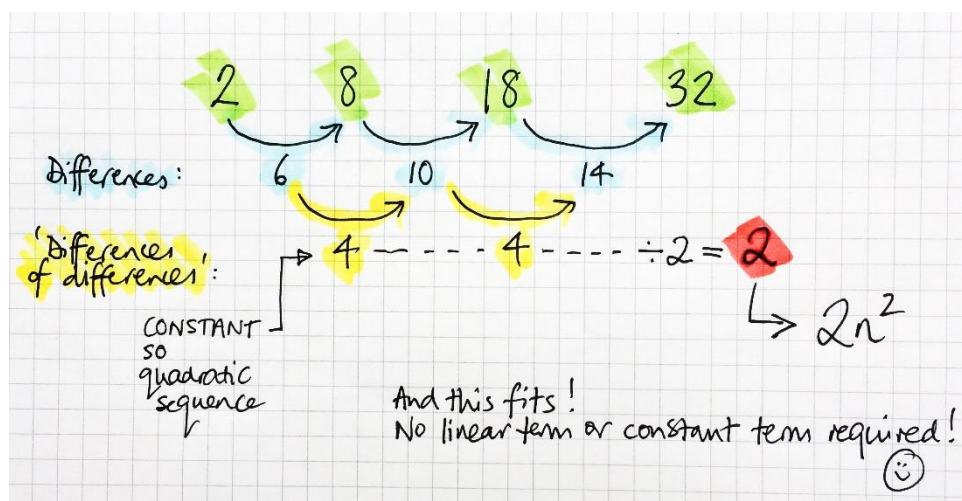 2 8 18 32
Differences: 6 10 14
'Differences
of differences': 4 - - - - - 4 - - - - ÷2 = 2
2n²
CONSTANT
so
quadratic
sequence
And this fits!
No linear term or constant term required!